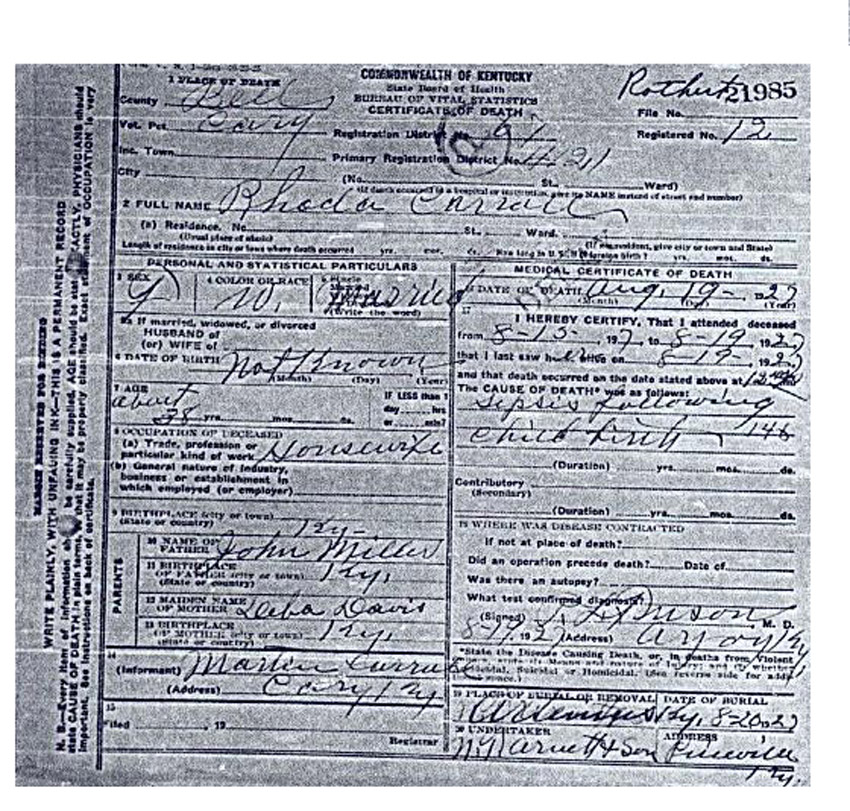 1 PLACE OF DEATH
COMMONWEALTH OF KENTUCKY
State Board of Health
BUREAU OF VITAL STATISTICS
CERTIFICATE OF DEATH
21985
File No.
Registered No. 12
County Bell
Vot. Pct. Cary
Registration District No.
Inc. Town
Primary Registration District No.
City
(No. St., Ward)
(If death occurred in a hospital or institution, give its NAME instead of street and number)
2 FULL NAME Rhoda Carroll
(a) Residence. No. St., Ward.
(Usual place of abode) (If nonresident, give city or town and State)
Length of residence in city or town where death occurred yrs. mos. ds. How long in U. S., if of foreign birth? yrs. mos. ds.
PERSONAL AND STATISTICAL PARTICULARS
3 SEX
4 COLOR OR RACE W.
Married
(Write the word)
5a If married, widowed, or divorced
HUSBAND of
(or) WIFE of
6 DATE OF BIRTH Not Known
(Month) (Day) (Year)
7 AGE
about 28 yrs. mos. ds.
IF LESS than 1
day hrs
or min?
8 OCCUPATION OF DECEASED
(a) Trade, profession or
particular kind of work Housewife
(b) General nature of industry,
business or establishment in
which employed (or employer)
9 BIRTHPLACE (city or town)
(State or country) Ky.
PARENTS
10 NAME OF FATHER John Miller
11 BIRTHPLACE
OF FATHER (city or town) Ky.
(State or country)
12 MAIDEN NAME
OF MOTHER Davis
13 BIRTHPLACE
OF MOTHER (city or town) Ky.
(State or country)
14
(Informant)
(Address) Cary Ky
15
Filed , 19
Registrar
MEDICAL CERTIFICATE OF DEATH
16 DATE OF DEATH Aug. 19 - 1927
(Month) (Day) (Year)
17
I HEREBY CERTIFY, That I attended deceased
from 8-15-, 1927, to 8-19, 1927
that I last saw her alive on 1927
and that death occurred on the date stated above at
The CAUSE OF DEATH* was as follows:
Sepsis following
Child birth
(Duration) yrs. mos. ds.
Contributory
(Secondary)
(Duration) yrs. mos. ds.
18 WHERE WAS DISEASE CONTRACTED
If not at place of death?
Did an operation precede death? Date of
Was there an autopsy?
What test confirmed diagnosis?
(Signed) M. D.
(Address)
*State the Disease Causing Death, or, in deaths from Violent
19 PLACE OF BURIAL OR REMOVAL
DATE OF BURIAL
Artemus Ky, 8-20-27
20 UNDERTAKER
ADDRESS
Arnett & Son Pineville
Ky.
MARGIN RESERVED FOR BINDING
WRITE PLAINLY, WITH UNFADING INK—THIS IS A PERMANENT RECORD
N. B.—Every item of information should be carefully supplied. AGE should be stated EXACTLY. PHYSICIANS should
state CAUSE OF DEATH in plain terms, that it may be properly classified. Exact statement of OCCUPATION is very
important. See instructions on back of certificate.